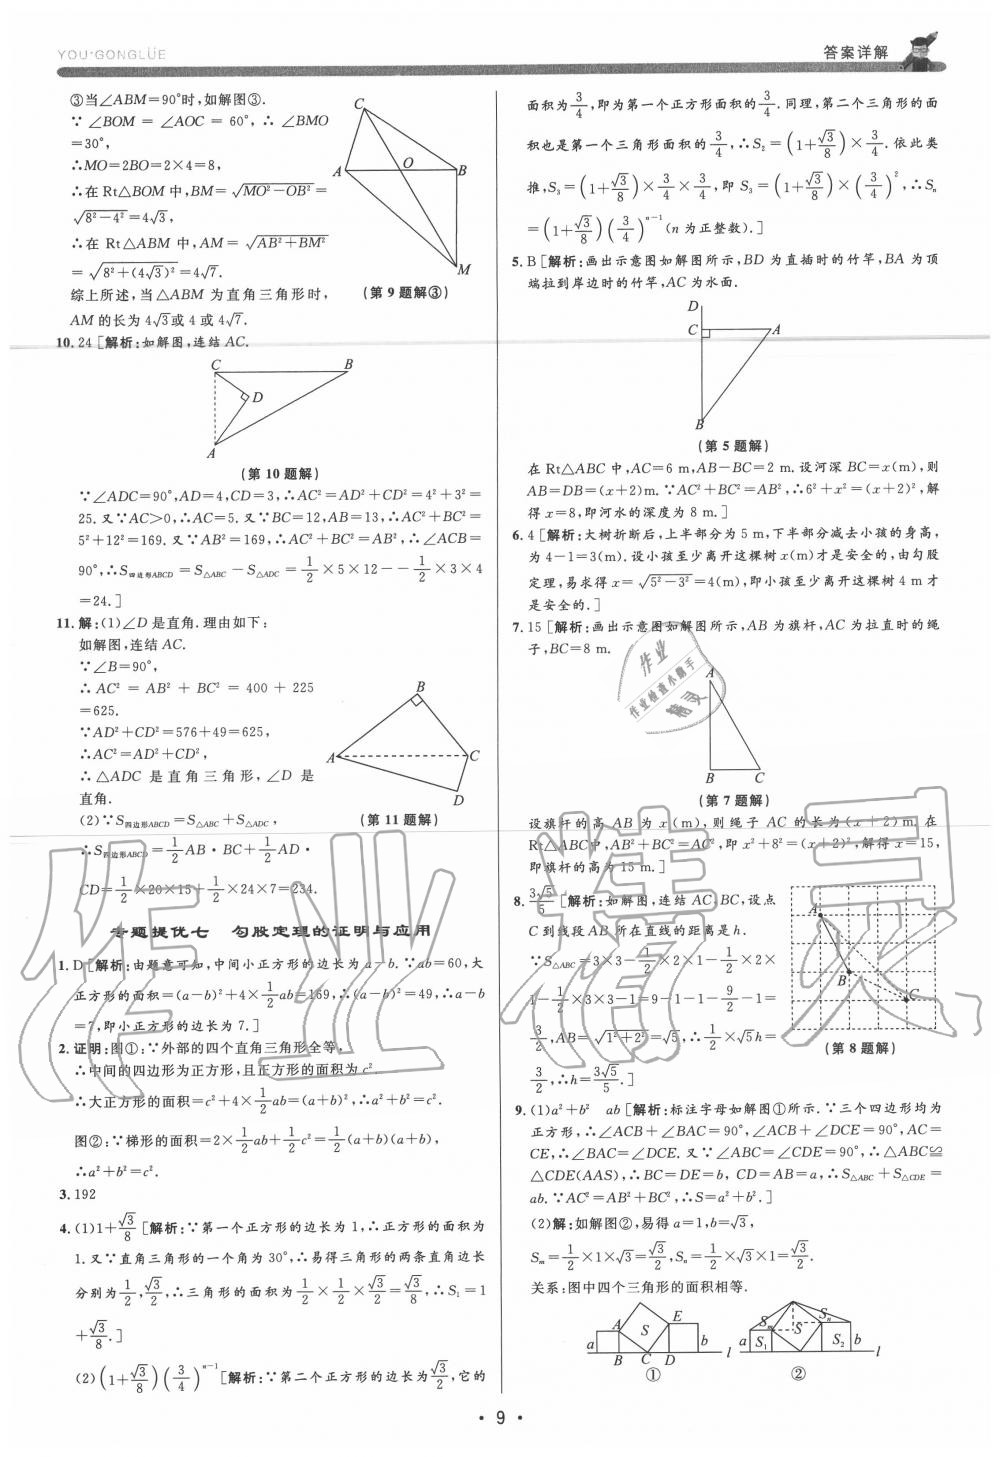 YOU·GONGLÜE
答案详解
③当∠ABM=90°时,如解图③.
∵ ∠BOM = ∠AOC = 60°,∴ ∠BMO
=30°,
∴MO=2BO=2×4=8,
∴在 Rt△BOM 中,BM=√(MO²-OB²)=
√(8²-4²)=4√3,
∴在 Rt△ABM 中,AM=√(AB²+BM²)
=√(8²+(4√3)²)=4√7.
综上所述,当△ABM 为直角三角形时,
AM 的长为 4√3或 4 或 4√7.
C
A
O
B
M
(第 9 题解③)
10. 24 [解析:如解图,连结 AC.
C
B
D
A
(第 10 题解)
∵∠ADC=90°,AD=4,CD=3,∴AC²=AD²+CD²=4²+3²=
25.又∵AC>0,∴AC=5.又∵BC=12,AB=13,∴AC²+BC²=
5²+12²=169.又∵AB²=169,∴AC²+BC²=AB²,∴∠ACB=
90°,∴S四边形ABCD=S△ABC-S△ADC=1/2×5×12--1/2×3×4
=24.]
11. 解:(1)∠D 是直角.理由如下:
如解图,连结 AC.
∵∠B=90°,
∴ AC² = AB² + BC² = 400 + 225
=625.
∵AD²+CD²=576+49=625,
∴AC²=AD²+CD²,
∴△ADC 是直角三角形,∠D 是
直角.
(2)∵S四边形ABCD=S△ABC+S△ADC,
B
A
C
D
(第 11 题解)
∴S四边形ABCD=1/2AB·BC+1/2AD·
CD=1/2×20×15+1/2×24×7=234.
专题提优七 勾股定理的证明与应用
1. D [解析:由题意可知,中间小正方形的边长为 a-b.∵ab=60,大
正方形的面积=(a-b)²+4×1/2ab=169,∴(a-b)²=49,∴a-b
=7,即小正方形的边长为 7.]
2. 证明:图①:∵外部的四个直角三角形全等,
∴中间的四边形为正方形,且正方形的面积为 c².
∴大正方形的面积=c²+4×1/2ab=(a+b)²,∴a²+b²=c².
图②:∵梯形的面积=2×1/2ab+1/2c²=1/2(a+b)(a+b),
∴a²+b²=c².
3. 192
4. (1)1+√3/8 [解析:∵第一个正方形的边长为 1,∴正方形的面积为
1.又∵直角三角形的一个角为 30°,∴易得三角形的两条直角边长
分别为1/2,√3/2,∴三角形的面积为1/2×1/2×√3/2=√3/8,∴S₁=1
+√3/8.]
(2)(1+√3/8)(3/4)ⁿ⁻¹ [解析:∵第二个正方形的边长为√3/2,它的
面积为3/4,即为第一个正方形面积的3/4.同理,第二个三角形的面
积也是第一个三角形面积的3/4,∴S₂=(1+√3/8)×3/4.依此类
推,S₃=(1+√3/8)×3/4×3/4,即 S₃=(1+√3/8)×(3/4)²,∴Sₙ
=(1+√3/8)(3/4)ⁿ⁻¹(n 为正整数).]
5. B [解析:画出示意图如解图所示,BD 为直插时的竹竿,BA 为顶
端拉到岸边时的竹竿,AC 为水面.
D
C
A
B
(第 5 题解)
在 Rt△ABC 中,AC=6 m,AB-BC=2 m.设河深 BC=x(m),则
AB=DB=(x+2)m.∵AC²+BC²=AB²,∴6²+x²=(x+2)²,解
得 x=8,即河水的深度为 8 m.]
6. 4 [解析:大树折断后,上半部分为 5 m,下半部分减去小孩的身高,
为 4-1=3(m).设小孩至少离开这棵树 x(m)才是安全的,由勾股
定理,易求得 x=√(5²-3²)=4(m),即小孩至少离开这棵树 4 m 才
是安全的.]
7. 15 [解析:画出示意图如解图所示,AB 为旗杆,AC 为拉直时的绳
子,BC=8 m.
A
B
C
(第 7 题解)
设旗杆的高 AB 为 x(m),则绳子 AC 的长为(x+2)m.在
Rt△ABC中,AB²+BC²=AC²,即 x²+8²=(x+2)²,解得 x=15,
即旗杆的高为 15 m.]
8. 3√5/5 [解析:如解图,连结 AC,BC,设点
C 到线段 AB 所在直线的距离是 h.
∵S△ABC=3×3-1/2×2×1-1/2×2×
1-1/2×3×3-1=9-1-1-9/2-1=
3/2,AB=√(1²+2²)=√5,∴1/2×√5h=
3/2,∴h=3√5/5.]
A
B
C
(第 8 题解)
9. (1)a²+b² ab [解析:标注字母如解图①所示.∵三个四边形均为
正方形,∴∠ACB+∠BAC=90°,∠ACB+∠DCE=90°,AC=
CE,∴∠BAC=∠DCE.又∵∠ABC=∠CDE=90°,∴△ABC≌
△CDE(AAS),∴BC=DE=b,CD=AB=a,∴S△ABC+S△CDE=
ab.∵AC²=AB²+BC²,∴S=a²+b².]
(2)解:如解图②,易得 a=1,b=√3,
Sₘ=1/2×1×√3=√3/2,Sₙ=1/2×√3×1=√3/2.
关系:图中四个三角形的面积相等.
A
E
a
S
b
B
C
D
l
①
Sₘ
Sₙ
a
S₁
S
S₂
b
l
②
作业
作业检查小助手
精灵
作业精灵
· 9 ·